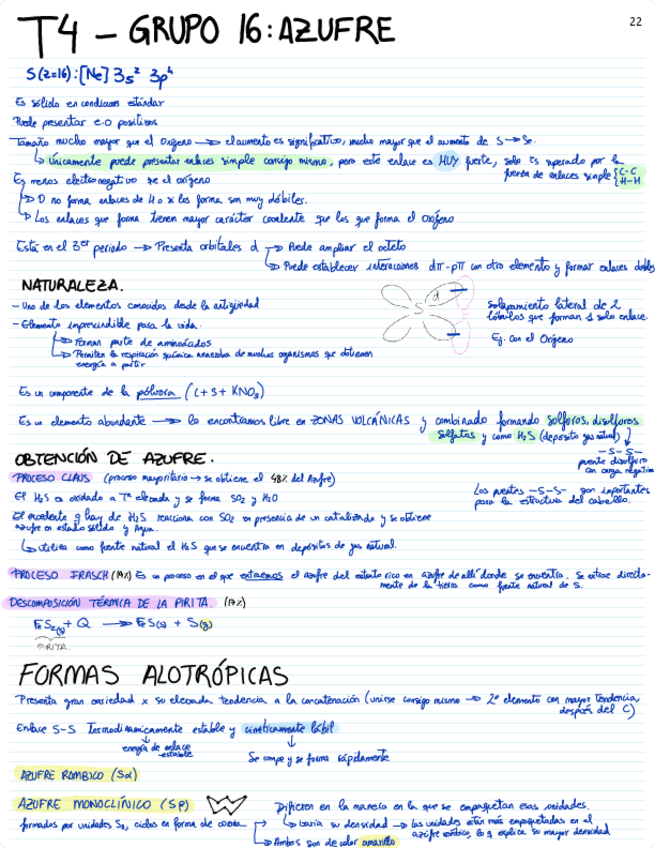 22
T4 - GRUPO 16: AZUFRE
S(z=16): [Ne] 3s² 3p⁴
Es sólido en condiciones estándar
Puede presentar e.o positivos
Tamaño mucho mayor que el Oxígeno → el aumento es significativo, mucho mayor que el aumento de S → Se.
↳ Únicamente puede presentar enlaces simple consigo mismo, pero este enlace es MUY fuerte, solo es superado por la
fuerza de enlaces simple { C-C
H-H
Es menos electronegativo que el oxígeno
→ No forma enlaces de H o x los forma son muy débiles.
↳ Los enlaces que forma tienen mayor carácter covalente que los que forma el Oxígeno
Está en el 3er periodo → Presenta orbitales d → Puede ampliar el octeto
↳ Puede establecer interacciones dπ-pπ con otro elemento y formar enlaces dobles
NATURALEZA.
- Uno de los elementos conocidos desde la antigüedad
- Elemento imprescindible para la vida.
→ Forman parte de aminoácidos
↳ Permiten la respiración química anaerobia de muchos organismos que obtienen
energía a partir
S
d
Solapamiento lateral de 2
lóbulos que forman 1 solo enlace.
Ej. Con el Oxígeno
Es un componente de la pólvora (C+S+KNO₃)
Es un elemento abundante → lo encontramos libre en ZONAS VOLCÁNICAS y combinado formando sulfuros, disulfuros
sulfatos y como H₂S (deposito gas natural)
-S-S-
puente disulfuro
con carga negativa
Los puentes -S-S- son importantes
para la estructura del cabello.
OBTENCIÓN DE AZUFRE.
PROCESO CLAUS (proceso mayoritario → se obtiene el 48% del Azufre)
El H₂S es oxidado a Tª elevada y se forma SO₂ y H₂O
El excedente q hay de H₂S reacciona con SO₂ en presencia de un catalizador y se obtiene
azufre en estado sólido y Agua.
↳ utiliza como fuente natural el H₂S que se encuentra en depósitos de gas natural.
PROCESO FRASCH (19%) Es un proceso en el que extraemos el azufre del estrato rico en azufre de allí donde se encuentra. Se extrae directa-
mente de la tierra como fuente natural de S.
DESCOMPOSICIÓN TÉRMICA DE LA PIRITA. (17%)
FeS₂(s) + Q → FeS(s) + S(g)
PIRITA
FORMAS ALOTRÓPICAS
Presenta gran variedad x su elevada tendencia a la concatenación (unirse consigo mismo → 2º elemento con mayor tendencia,
después del C)
Enlace S-S Termodinámicamente estable y cinéticamente lábil
energía de enlace
estable
Se rompe y se forma rápidamente
AZUFRE RÓMBICO (Sα)
AZUFRE MONOCLÍNICO (Sβ)
formados por unidades S₈, ciclos en forma de corona
Difieren en la manera en la que se empaquetan esas unidades.
↳ Varía su densidad → las unidades están más empaquetadas en el
azufre rómbico, lo q explica su mayor densidad
↳ Ambos son de color amarillo